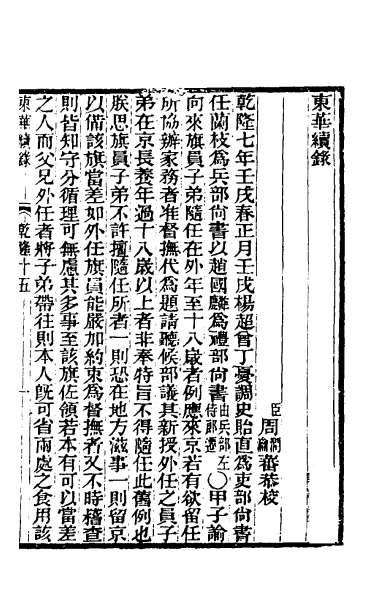 東華續錄
臣周潤蕃恭校
乾隆七年壬戌春正月壬戌楊超曾丁憂調史貽直爲吏部尙書
任蘭枝爲兵部尙書以趙國麟爲禮部尙書由兵部左侍郞遷〇甲子諭
向來旗員子弟隨任在外年至十八歲者例應來京若有欲留任
所協辦家務者准督撫代爲題請聽候部議其新授外任之員子
弟在京長養年過十八歲以上者非奉特旨不得隨任此舊例也
朕思旗員子弟不許擅隨任所者一則恐在地方滋事一則留京
以備該旗當差如外任旗員能嚴加約束爲督撫者又不時稽查
則皆知守分循理可無慮其多事至該旗佐領若本有可以當差
之人而父兄外任者將子弟帶往則本人旣可省兩處之食用該
東華續錄 乾隆十五 一